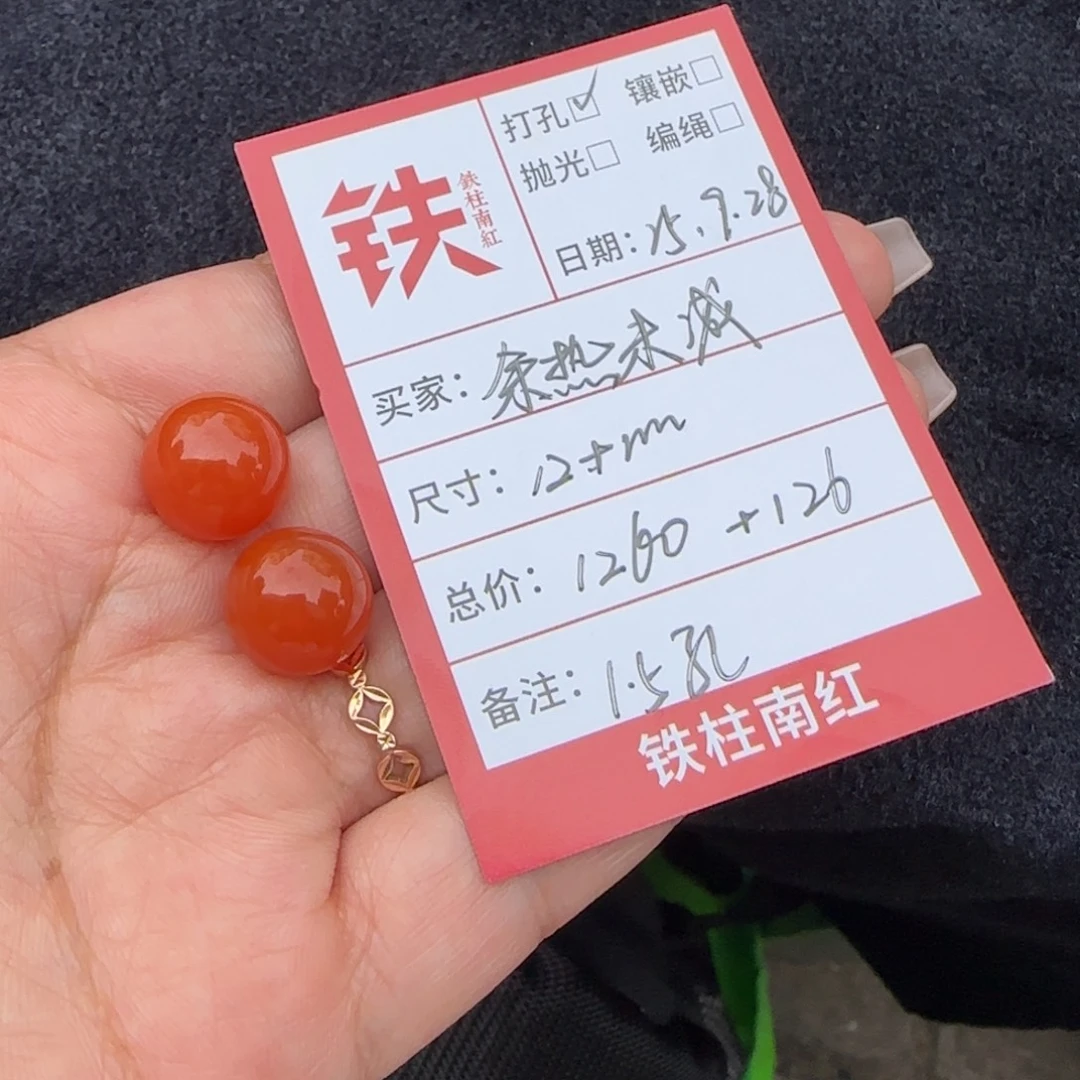 铁
鉄柱南紅
打孔☑ 镶嵌□
抛光□ 编绳□
日期：25.9.28
买家：余热未减
尺寸：12+mm
总价：1260 +126
备注：1.5孔
铁柱南红